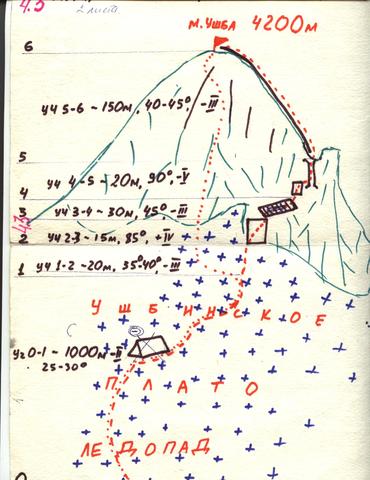 4.3
2 листа.
М. УШБА 4200м
6
уч 5-6 ~ 150м, 40-45°, -III
5
уч 4-5 ~ 20м, 90°, -V
4
уч 3-4 ~ 30м, 45° -III
3
4.3
уч 2-3 ~ 15м, 85°, -IV
2
уч 1-2 ~ 20м, 35-40°, -III
1
УШБИНСКОЕ
Уч 0-1 ~ 1000м -II
25-30°
ПЛАТО
ЛЕДОПАД
0